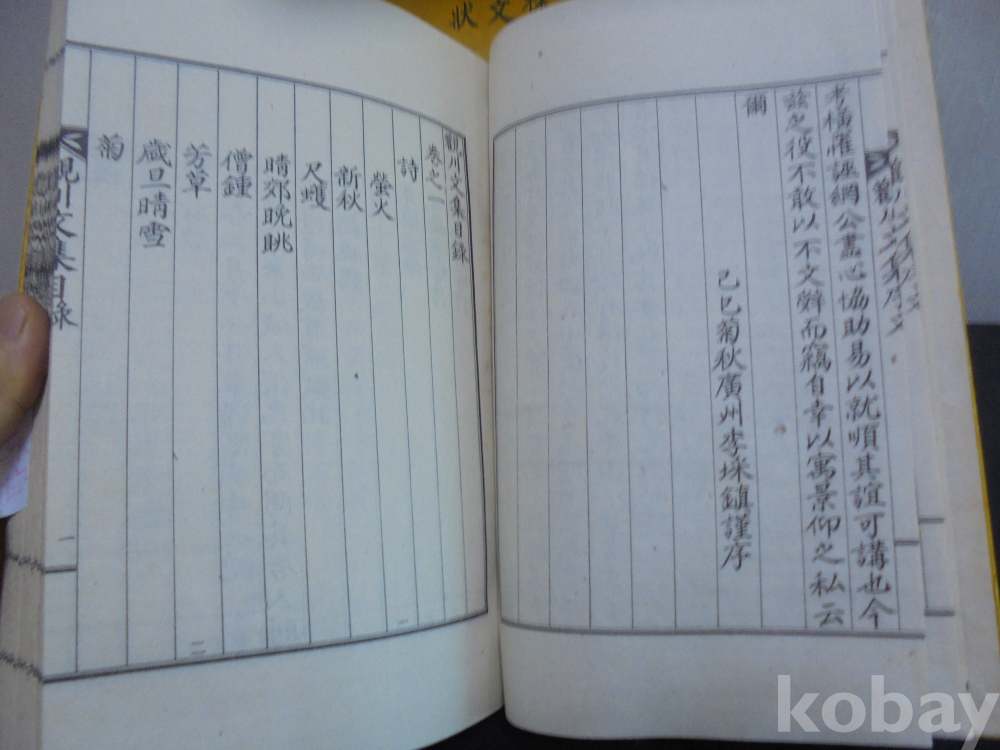 考橫罹誣網公盡心協助易以就順其誼可講也今
茲之役不敢以不文辭而竊自幸以寓景仰之私云
爾
己巳菊秋廣州李埰鎮謹序
觀川文集目錄
卷之一
詩
螢火
新秋
尺蠖
晴郊晩眺
僧鍾
芳草
歲旦晴雪
菊
觀川文集目錄
一
二
kobay